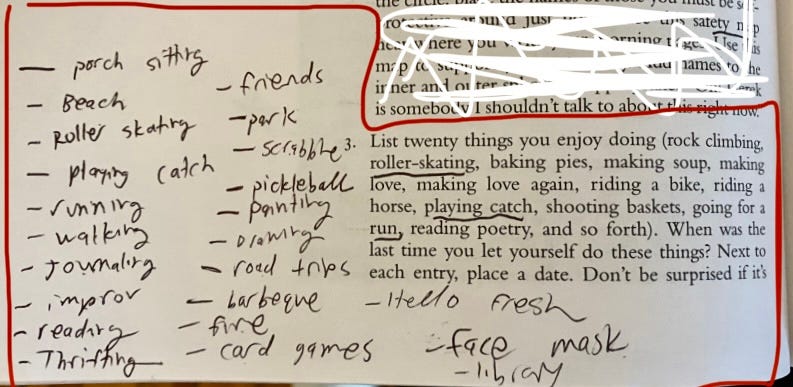 — porch sitting
— Beach
— Roller skating
— playing catch
— running
— walking
— Journaling
— improv
— reading
— Thrifting
— friends
— park
— scrabble
— pickleball
— painting
— Drawing
— road trips
— barbeque
— fire
— card games
— Hello Fresh
— face mask
— library
around just this safety
here where you morning Use
map names to the
inner and outer
is somebody I shouldn't talk to about this right now."
3. List twenty things you enjoy doing (rock climbing,
roller-skating, baking pies, making soup, making
love, making love again, riding a bike, riding a
horse, playing catch, shooting baskets, going for a
run, reading poetry, and so forth). When was the
last time you let yourself do these things? Next to
each entry, place a date. Don't be surprised if it's